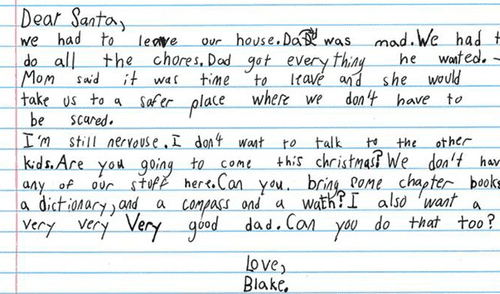 Dear Santa,
we had to leave our house. Dad was mad. We had t
do all the chores. Dad got everything he wanted.
Mom said it was time to leave and she would
take us to a safer place where we don't have to
be scared.
I'm still nervouse. I don't want to talk to the other
kids. Are you going to come this christmas? We don't hav
any of our stuff here. Can you. bring some chapter books
a dictionary, and a compass and a wath? I also want a
very very very good dad. Can you do that too?
Love,
Blake.